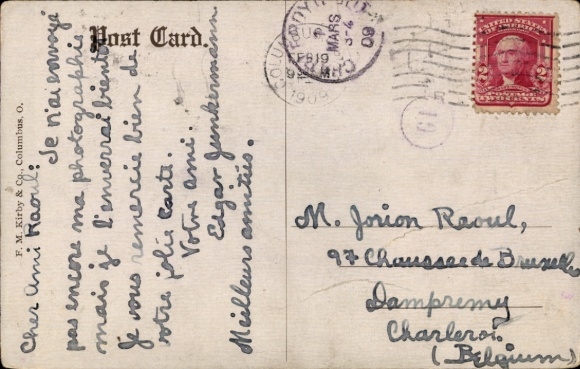 Post Card.
F. M. Kirby & Co., Columbus, O.
Cher Ami Raoul:
Je n'ai envoyé
pas encore ma photographie
mais je l'enverrai bientôt
Je vous remercie bien de
votre jolie carte.
Votre ami.
Edgar Junkermann
Meilleurs amitiés.
COLUM
FEB 19
1909
MARS
09
19
UNITED STATES
OF AMERICA
2 2
POSTAGE
TWO CENTS
M. Jorion Raoul,
97 Chaussee de Bruxelles
Dampremy
Charleroi
(Belgium)